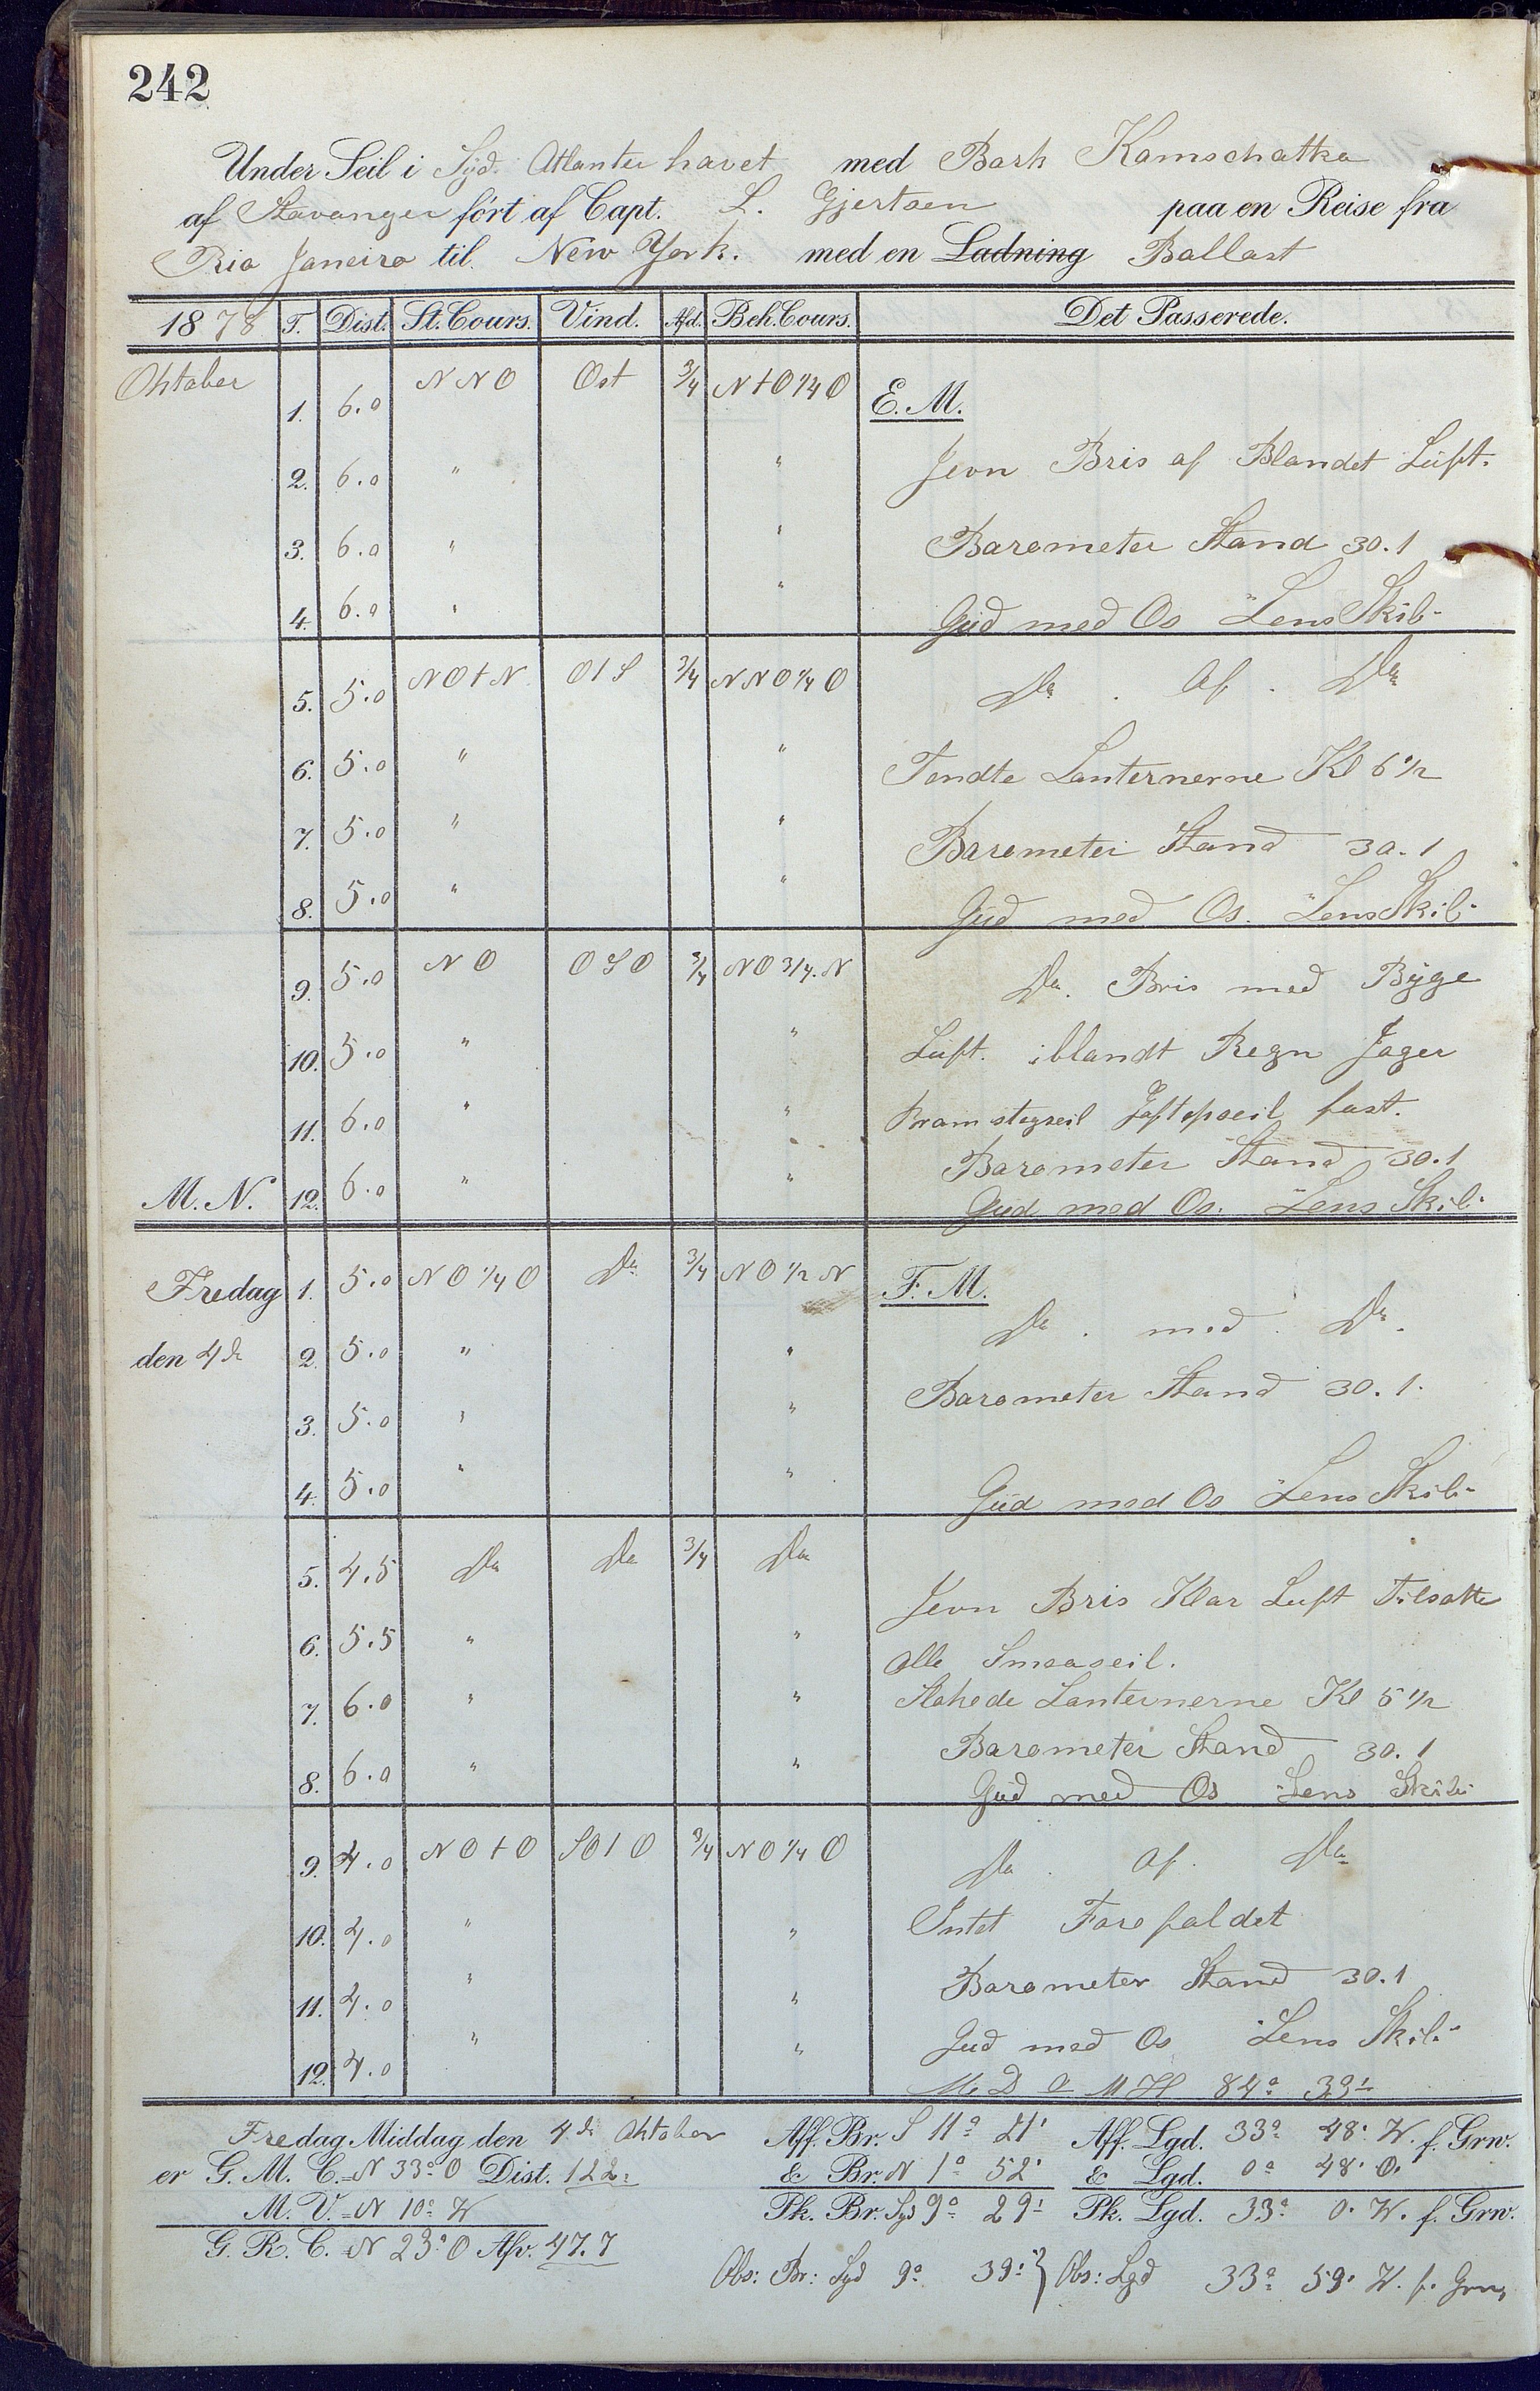 242
Under Seil i Syd. Atlanter havet med Bark Kamschatka
af Stavanger fört af Capt. L. Gjertsen paa en Reise fra
Rio Janeiro til New York. med en Ladning Ballast
1878 T. Dist. St. Cours. Vind. Afd. Beh. Cours. Det Passerede.
Oktober 1. 6.0 NNO Ost 3/4 N t O 1/4 O E. M.
2. 6.0 " " Jevn Bris af Blandet Luft.
3. 6.0 " " Barometer Stand 30.1
4. 6.0 " " Gud med Os "Lens Skib"
5. 5.0 NO t N O t S 3/4 NNO 1/4 O Do. Af. Do
6. 5.0 " " Tendte Lanternerne Kl 6 1/2
7. 5.0 " " Barometer Stand 30.1
8. 5.0 " " Gud med Os. "Lens Skib"
9. 5.0 NO OSO 3/4 NO 3/4 N Do. Bris med Byge
10. 5.0 " " Luft. iblandt Regn Jager
11. 6.0 " " Bramstagseil Gaftopseil fast.
Barometer Stand 30.1
M. N. 12. 6.0 " " Gud med Os. "Lens Skib"
Fredag 1. 5.0 NO 1/4 O Do 3/4 NO 1/2 N F. M.
Do. med. Do.
den 4de 2. 5.0 " "
Barometer Stand 30.1.
3. 5.0 " "
4. 5.0 " " Gud med Os "Lens Skib"
5. 4.5 Do Do 3/4 Do
Jevn Bris Klar Luft Tilsatte
6. 5.5 " " alle Smaaseil.
7. 6.0 " " Slokede Lanternerne Kl 5 1/2
Barometer Stand 30.1
8. 6.0 " " Gud med Os "Lens Skib"
9. 4.0 NO t O SO t O 3/4 NO 1/4 O Do. Af. Do
10. 4.0 " " Intet Forefaldet
11. 4.0 " " Barometer Stand 30.1
Gud med Os "Lens Skib"
12. 4.0 " " 84° 39'
Fredag Middag den 4de Oktober Aff. Br. S 11° 21' Aff. Lgd. 33° 48' W. f. Grw.
er G. M. C. = N 33° O Dist. 122. & Br. N 1° 52' & Lgd. 0° 48' O.
M. V. = N 10° W Pk. Br. Syd 9° 29' Pk. Lgd. 33° 0. W. f. Grw.
G. R. C. = N 23° O Afv. 47.7
Obs: Br: Syd 9° 39' } Obs: Lgd 33° 59' W. f. Grw,